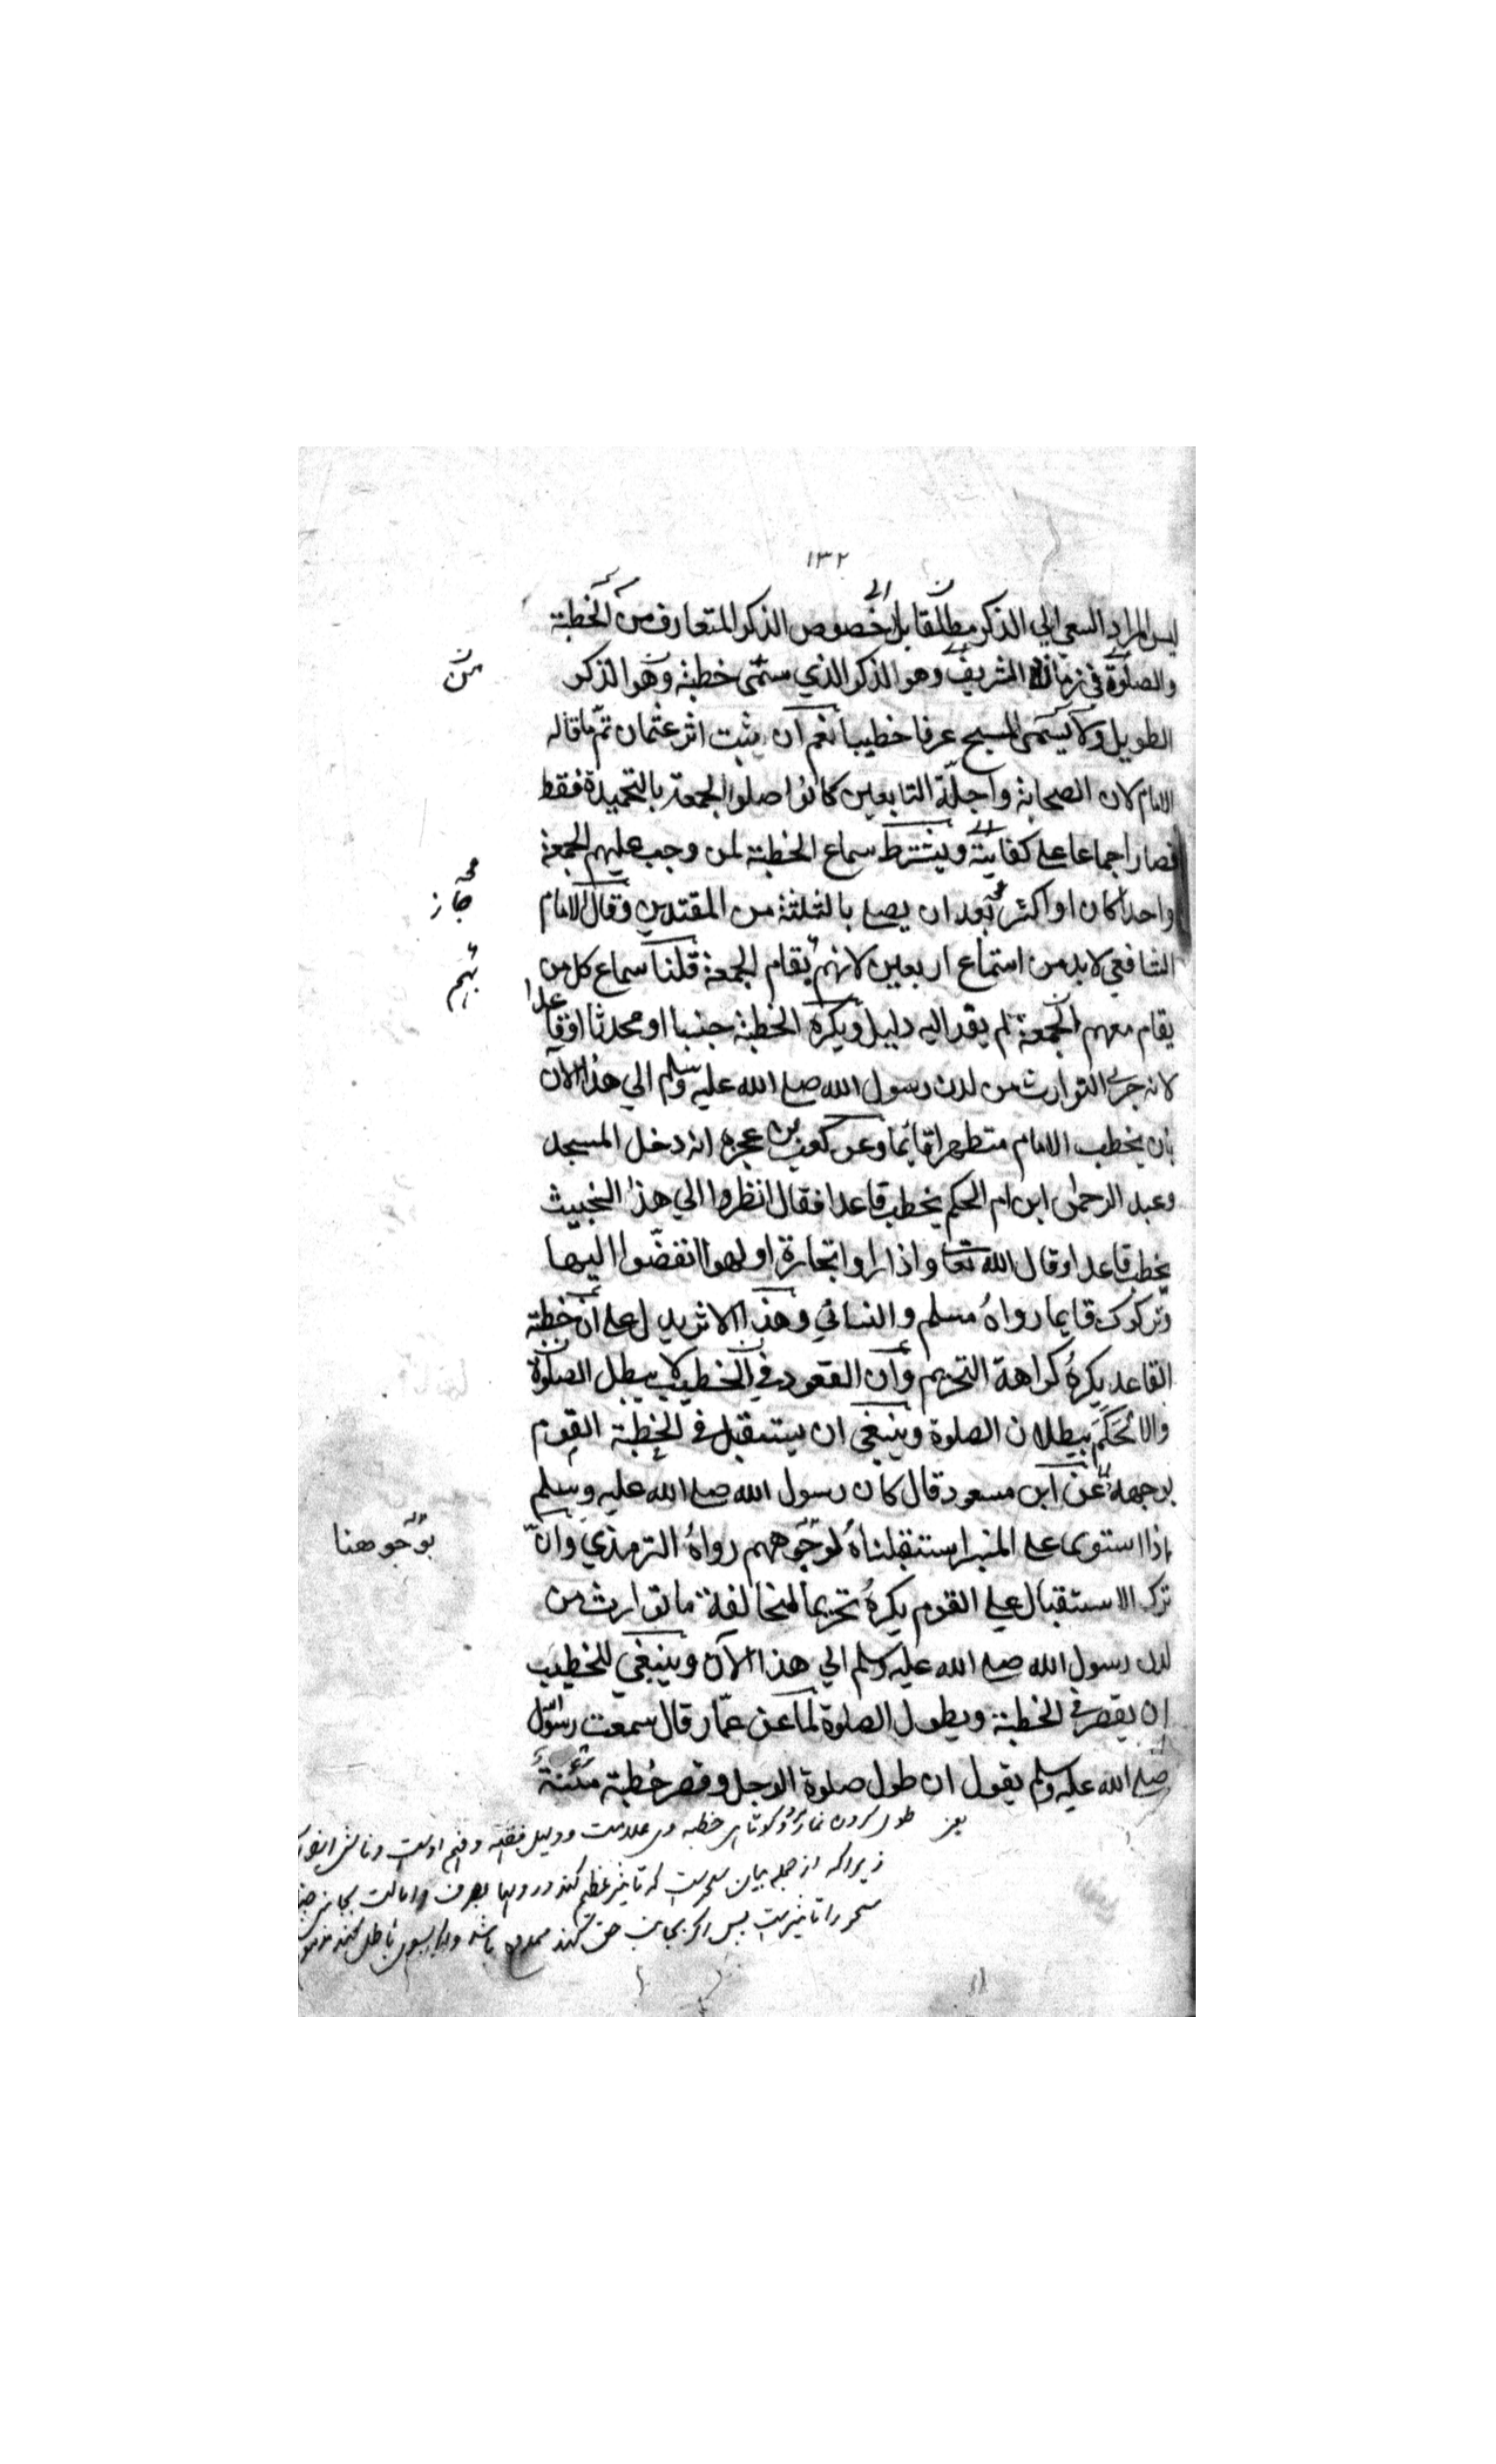 ١٣٢
ليس المراد السعي الي الذكر مطلقا بل الي خصوص الذكر المتعارف من الخطبة
والصلوة في زمانه الشريف وهو الذكر الذي ستمى خطبة وهو الذكر
الطويل ولا يسمى المسبح عرفا خطيبا نعم ان يثبت اثر عثمان تم ما قاله
الامام لان الصحابة واجلة التابعين كانوا صلوا الجمعة بالتحميدة فقط
فصار اجماعا على كفايته ويشترط سماع الخطبة لمن وجب عليهم الجمعة
واحدا كان او اكثر بعد ان يصلي بالثلثة من المقتدين وقال الامام
الشافعي لابد من استماع اربعين لانهم يقام الجمعة قلنا سماع كل من
يقام معهم الجمعة لم يقد اليه دليل ويكره الخطبة جنبا او محدثا او قاعدا
لانه جرى التوارث من لدن رسول الله صلى الله عليه وسلم الي هذا الآن
بان يخطب الامام متطهرا قايما وعن كعب بن عجره انه دخل المسجد
وعبد الرحمن ابن ام الحكم يخطب قاعدا فقال انظروا الي هذا الخبيث
يخطب قاعدا وقال الله تعا واذا راوا تجارة او لهوا انفضّوا اليها
وتركوك قايما رواه مسلم والنسائي وهذا الاثر يدل على ان خطبة
القاعد يكره كراهة التحريم وان القعود في الخطبة لا يبطل الصلوة
والا لحكم ببطلان الصلوة وينبغي ان يستقبل في الخطبة القوم
بوجهه عن ابن مسعود قال كان رسول الله صلى الله عليه وسلم
اذا استوى على المنبر استقبلناه بوجوههم رواه الترمذي وانّ
ترك الاستقبال على القوم يكره تحريما لمخالفة ما توارث من
لدن رسول الله صلى الله عليه وسلم الي هذا الآن وينبغي للخطيب
ان يقصر في الخطبة ويطول الصلوة لما عن عمّار قال سمعت رسول الله
صلى الله عليه وسلم يقول ان طول صلوة الرجل وقصر خطبة مئنة
من
جاز
بهم
بوجوهنا
خطبه
زيراكه از جمله بيان سحرست كه تاثير عظيم كند در دلها
سحر را تاثيرست پس اگر بجانب حق كند ممدوح باشد